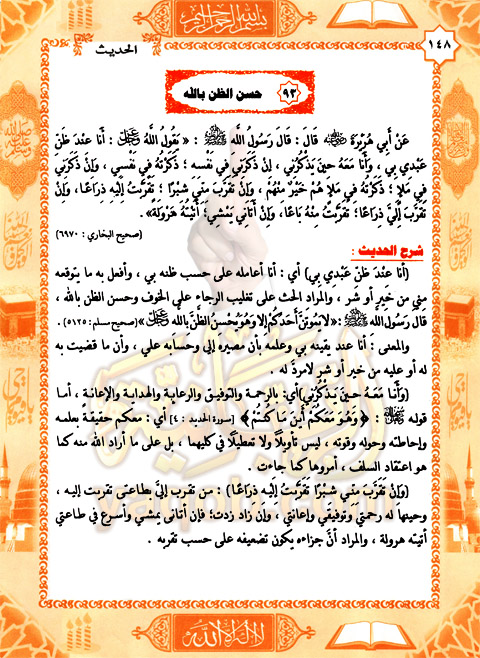 بسم الله الرحمن الرحيم
الحديث
١٤٨
٩٢ حسن الظن بالله
عَنْ أَبِي هُرَيْرَةَ رضي الله عنه قَالَ : قَالَ رَسُولُ اللَّهِ ﷺ : « يَقُولُ اللَّهُ عز وجل : أَنَا عِنْدَ ظَنِّ
عَبْدِي بِي ، وَأَنَا مَعَهُ حِينَ يَذْكُرُنِي ، إِنْ ذَكَرَنِي فِي نَفْسِهِ ؛ ذَكَرْتُهُ فِي نَفْسِي ، وَإِنْ ذَكَرَنِي
فِي مَلَإٍ ؛ ذَكَرْتُهُ فِي مَلَإٍ هُمْ خَيْرٌ مِنْهُمْ ، وَإِنْ تَقَرَّبَ مِنِّي شِبْرًا ؛ تَقَرَّبْتُ إِلَيْهِ ذِرَاعًا، وَإِنْ
تَقَرَّبَ إِلَيَّ ذِرَاعًا؛ تَقَرَّبْتُ مِنْهُ بَاعًا ، وَإِنْ أَتَانِي يَمْشِي؛ أَتَيْتُهُ هَرْوَلَةً».
(صحيح البخاري : ٦٩٧٠)
شرح الحديث :
(أَنَا عِنْدَ ظَنِّ عَبْدِي بِي) أي : أنا أعامله على حسب ظنه بي ، وأفعل به ما يتوقعه
مني من خير أو شر ، والمراد الحث على تغليب الرجاء على الخوف وحسن الظن بالله ،
قال رَسُولُ اللَّهِ ﷺ :«لا يَمُوتَنَّ أَحَدُكُمْ إِلا وَهُوَ يُحْسِنُ الظَّنَّ بِاللهِ عز وجل» (صحيح مسلم : ٥١٢٥).
والمعنى : أنا عند يقينه بي وعلمه بأن مصيره إلي وحسابه علي ، وأن ما قضيت به
له أو عليه من خير أو شر لا مرد له .
(وَأَنَا مَعَهُ حِينَ يَذْكُرُنِي)أي: بالرحمة والتوفيق والرعاية والهداية والإعانة ، أما
قوله : ﴿ وَهُوَ مَعَكُمْ أَيْنَ مَا كُنتُمْ ﴾ [سورة الحديد : ٤] أي : معكم حقيقة بعلمه
وإحاطته وحوله وقوته ، ليس تأويلاً ولا تعطيلاً في كليهما ، بل على ما أراد الله منه كما
هو اعتقاد السلف ، أمروها كما جاءت .
(وَإِنْ تَقَرَّبَ مِنِّي شِبْرًا تَقَرَّبْتُ إِلَيْهِ ذِرَاعًا) : من تقرب إليَّ بطاعتي تقربت إليه ،
وحينها له رحمتي وتوفيقي وإعانتي ، وإن زاد زدت؛ فإن أتاني يمشي وأسرع في طاعتي
أتيته هرولة ، والمراد أنَّ جزاءه يكون تضعيفه على حسب تقربه .
لا إله إلا الله